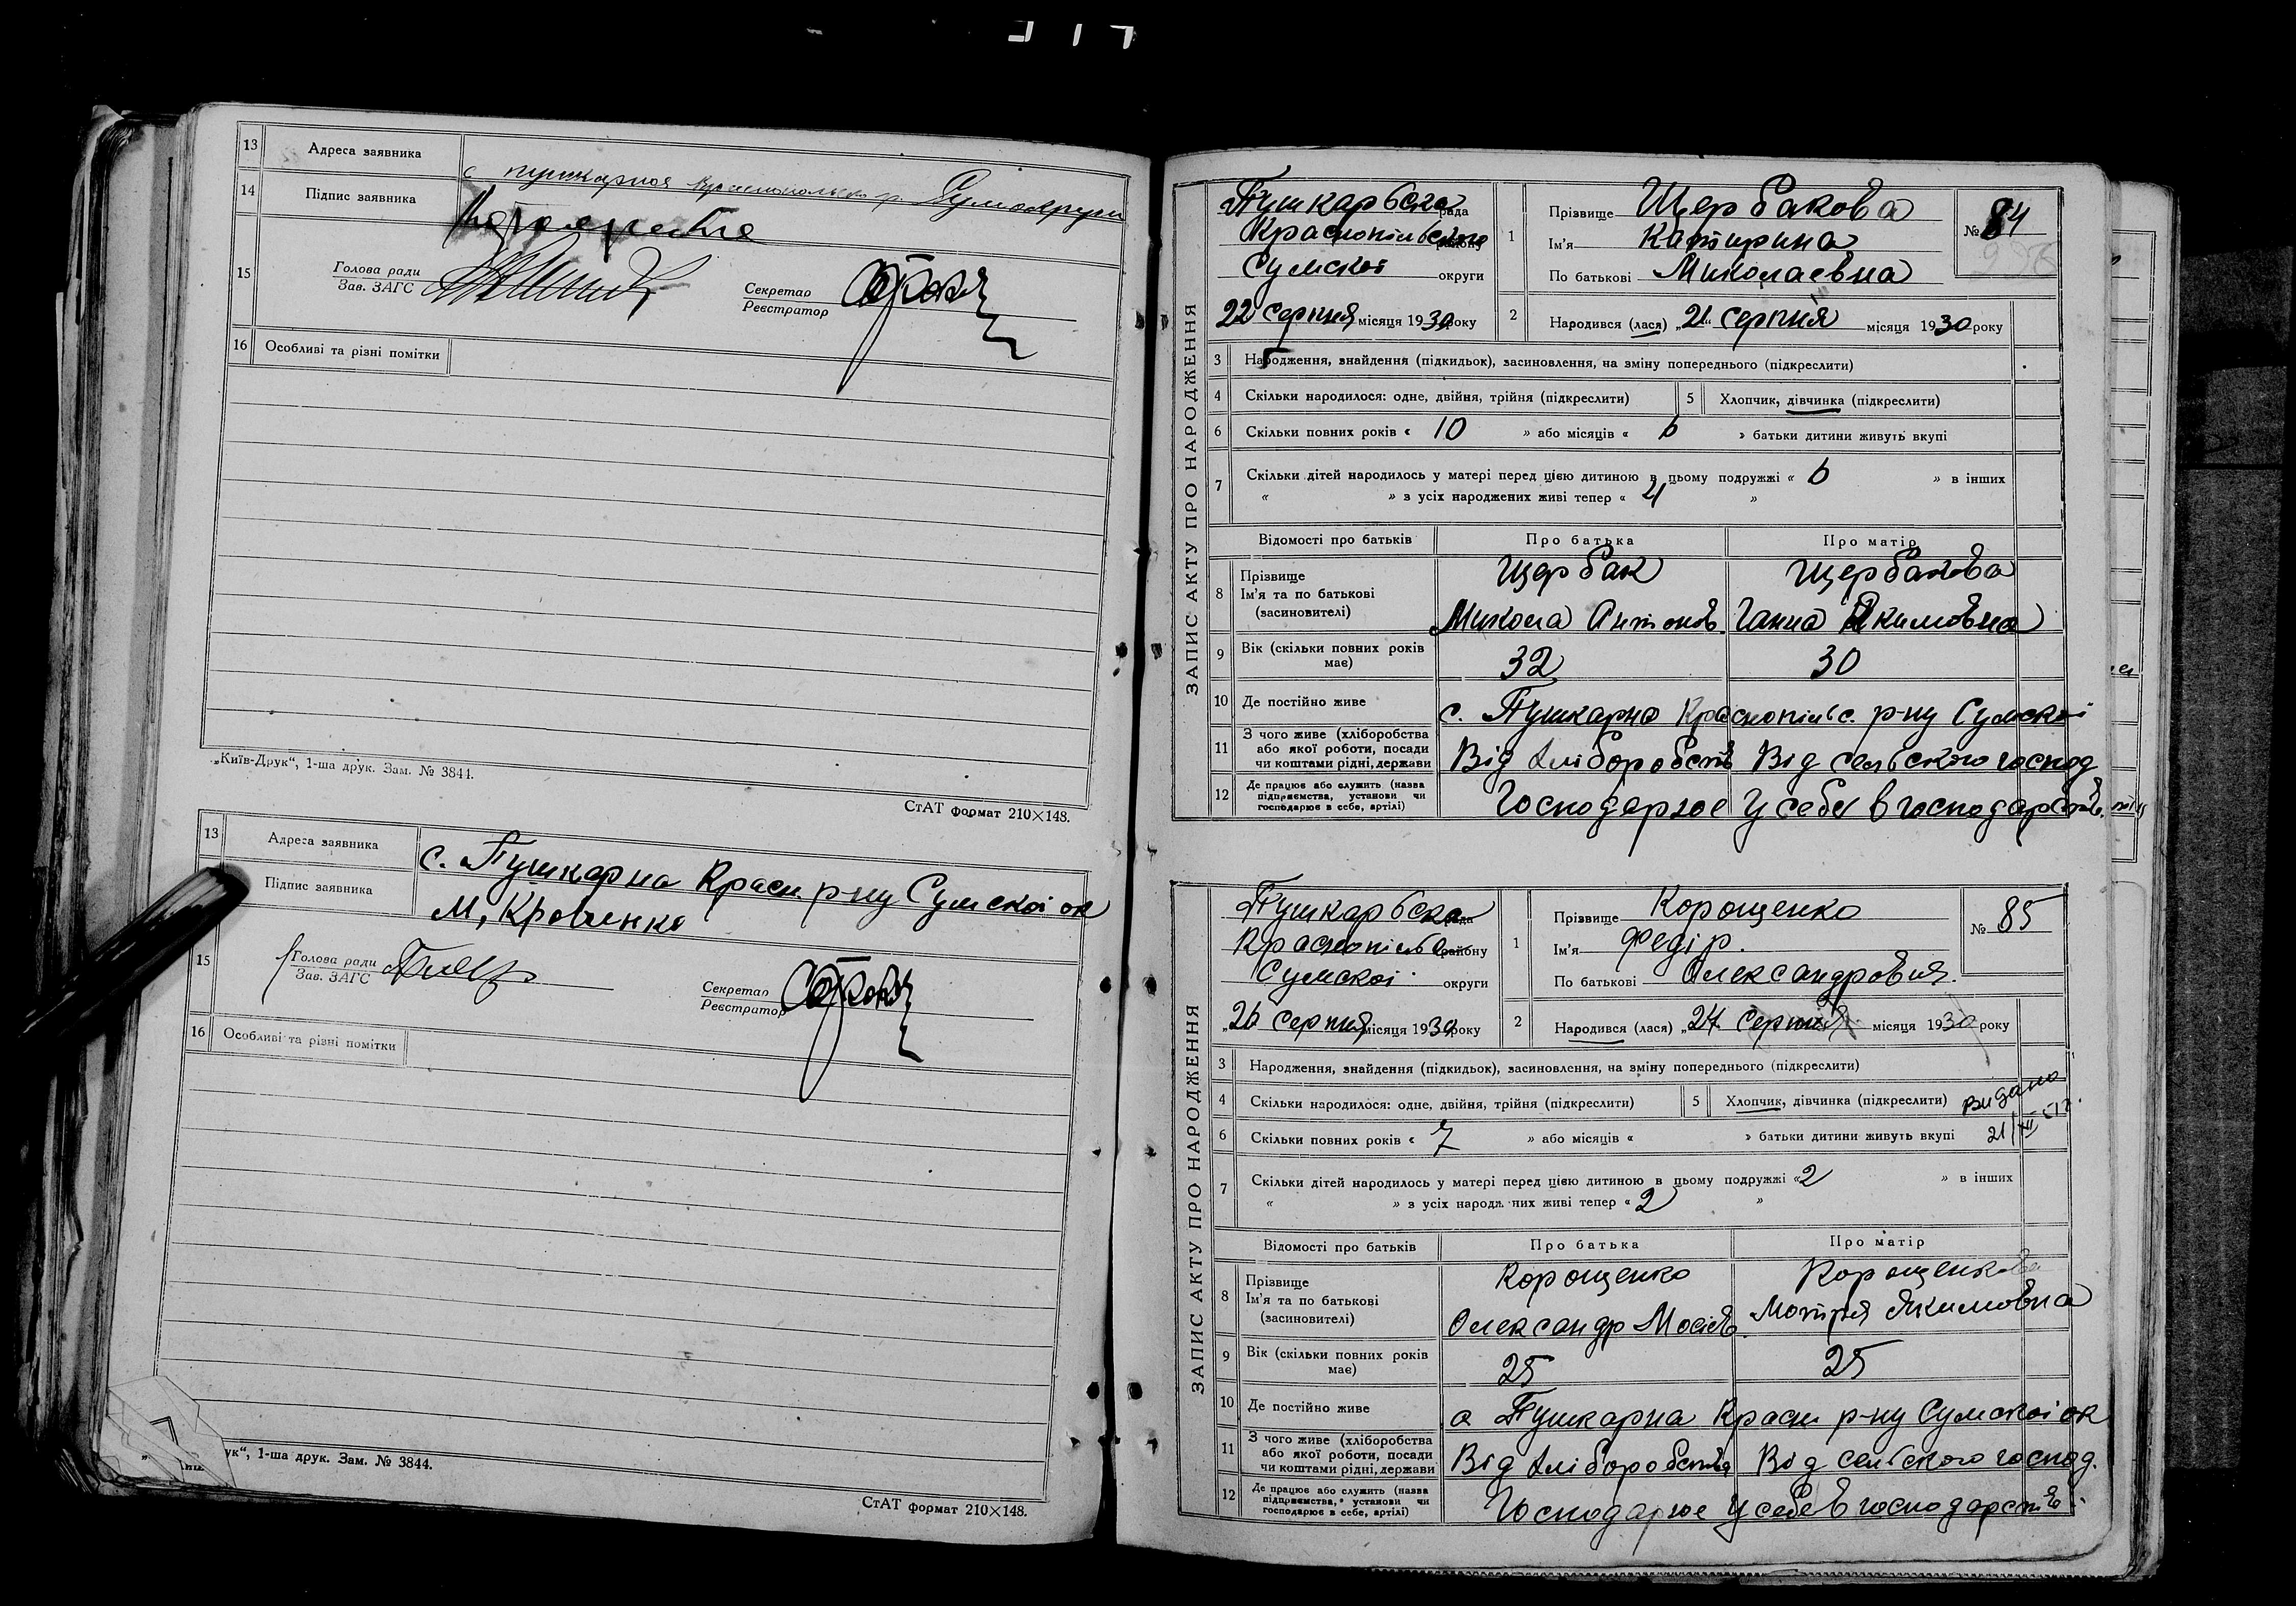 13 Адреса заявника
с пушкарная р. Сумокруги
14 Підпис заявника
15 Голова ради
Зав. ЗАГС
Секретар
Реєстратор
16 Особливі та різні помітки
„Київ-Друк“, 1-ша друк. Зам. № 3844.
СтАТ формат 210×148.
13 Адреса заявника
с. Пушкарна Красн. р-ну Сумскоі ок
14 Підпис заявника
М, Кровченко
15 Голова ради
Зав. ЗАГС
Секретар
Реєстратор
16 Особливі та різні помітки
ук“, 1-ша друк. Зам. № 3844.
СтАТ формат 210×148.
ЗАПИС АКТУ ПРО НАРОДЖЕННЯ
Пушкарьска рада
Краснопільского району
Сумскоі округи
22 серпня місяця 1930 року
1 Прізвище Щербакова
Ім'я Катирина
По батькові Миколаевна
№ 84
2 Народився (лася) „21“ серпня місяця 1930 року
3 Народження, знайдення (підкидьок), засиновлення, на зміну попереднього (підкреслити)
4 Скільки народилося: одне, двійня, трійня (підкреслити) 5 Хлопчик, дівчинка (підкреслити)
6 Скільки повних років « 10 » або місяців « 6 » батьки дитини живуть вкупі
7 Скільки дітей народилось у матері перед цією дитиною в цьому подружжі « 6 » в інших
« » з усіх народжених живі тепер « 4 »
Відомості про батьків Про батька Про матір
8 Прізвище
Ім'я та по батькові
(засиновителі)
Щербак Щербакова
Микола Антонов. Ганна Якимовна
9 Вік (скільки повних років має) 32 30
10 Де постійно живе с. Пушкарна Краснопільс. р-ну Сумскоі
11 З чого живе (хліборобства
або якої роботи, посади
чи коштами рідні, держави
Від хліборобств Від сельского господ
12 Де працює або служить (назва
підприємства, установи чи
господарює в себе, артілі)
Господарює у себе в господарстві.
ЗАПИС АКТУ ПРО НАРОДЖЕННЯ
Пушкарьска рада
Краснопільс району
Сумскоі округи
„26 серпня місяця 1930 року
1 Прізвище Корощенко
Ім'я Федір.
По батькові Олександровия.
№ 85
2 Народився (лася) „24 серпня місяця 1930 року
3 Народження, знайдення (підкидьок), засиновлення, на зміну попереднього (підкреслити)
4 Скільки народилося: одне, двійня, трійня (підкреслити) 5 Хлопчик, дівчинка (підкреслити)
Видано
21/XII
6 Скільки повних років « 7 » або місяців « » батьки дитини живуть вкупі
7 Скільки дітей народилось у матері перед цією дитиною в цьому подружжі «2 » в інших
« » з усіх народж них живі тепер « 2 »
Відомості про батьків Про батька Про матір
8 Прізвище
Ім'я та по батькові
(засиновителі)
Корощенко Корощенкова
Олександр Мосієв. Мотря Якимовна
9 Вік (скільки повних років має) 25 25
10 Де постійно живе с Пушкарна Красн р-ну Сумскоі ок
11 З чого живе (хліборобства
або якої роботи, посади
чи коштами рідні, держави
Від хліборобства Від сельского господ.
12 Де працює або служить (назва
підприємства, установи чи
господарює в себе, артілі)
Господарює у себе в господарстві.